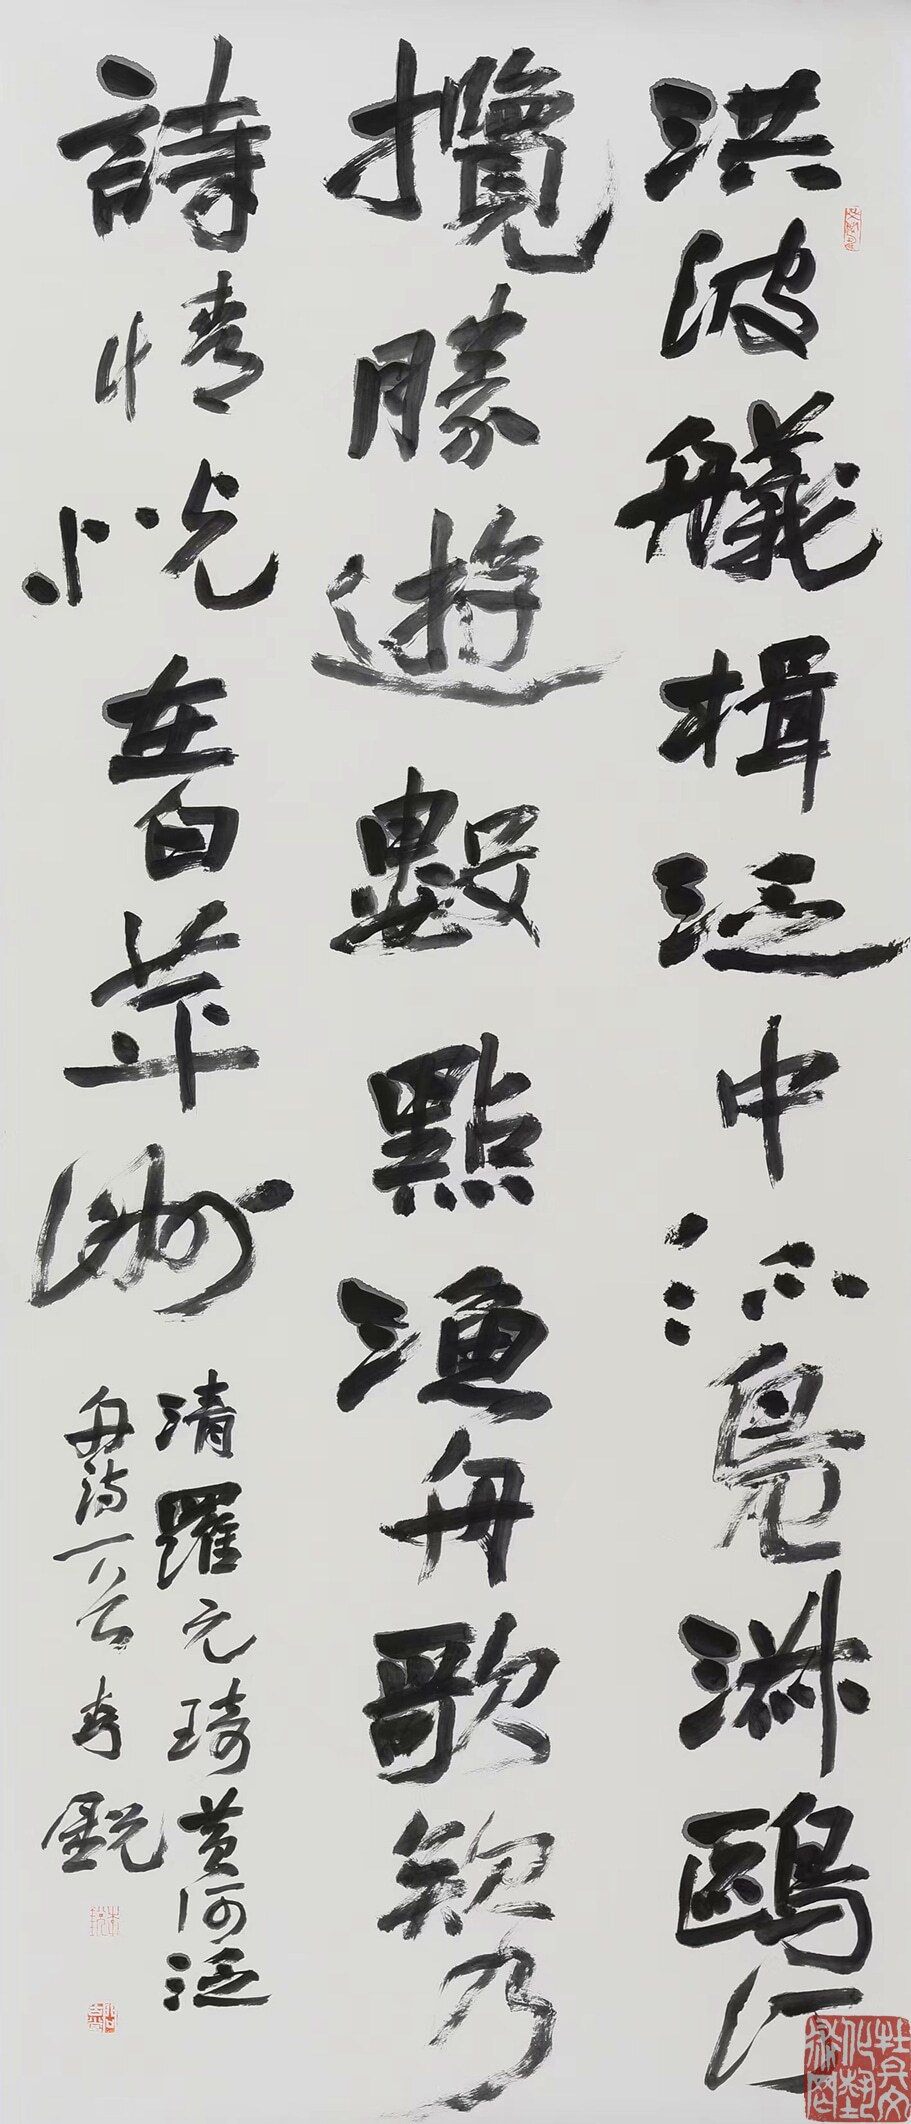 洪波艤楫泛中流鳧渚鷗汀
攬勝遊數點漁舟歌欸乃
詩情恍在白蘋洲
清羅元琦黃河泛
舟詩一首 李銳